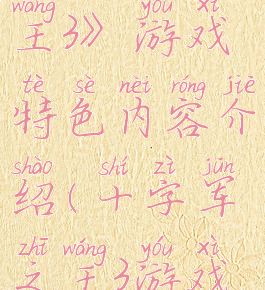 wáng yóu xì
王3》游戏
tè sè nèi róng jiè
特色内容介
shào shí zì jūn
绍(十字军
zhī wáng yóu xì
之王3游戏